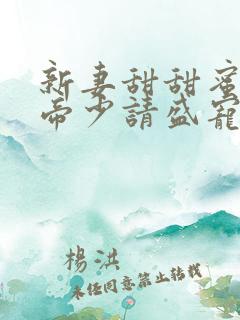 新妻甜甜蜜
帝少請盛寵
楊洪
未經同意禁止轉載